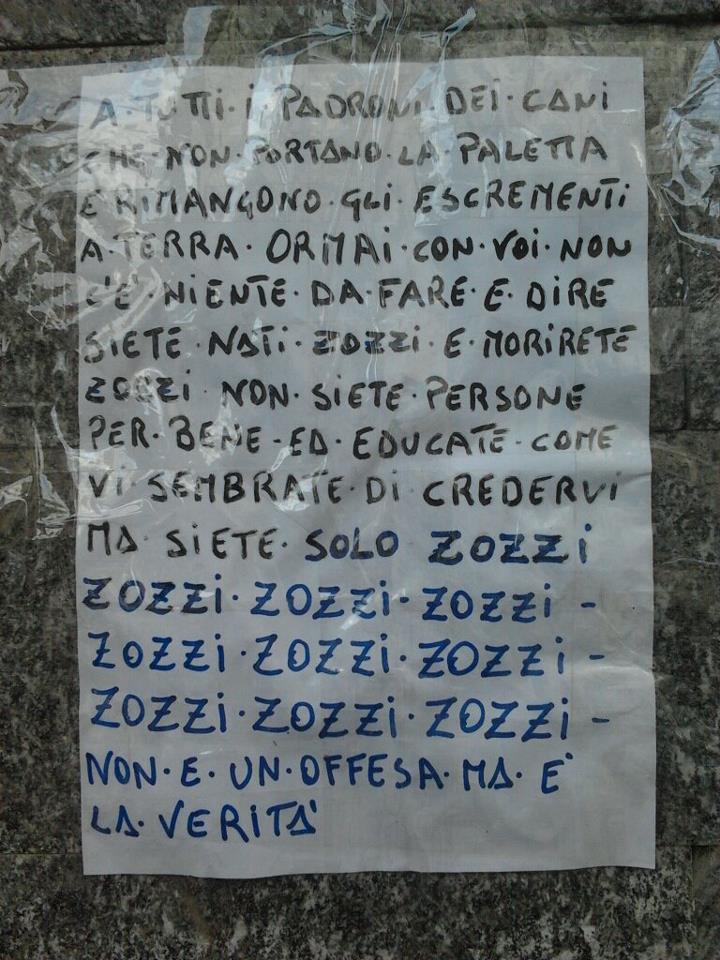 A·TUTTI·I·PADRONI·DEI·CANI
CHE·NON·PORTANO·LA·PALETTA
E RIMANGONO·GLI·ESCREMENTI
A·TERRA·ORMAI·CON·VOI·NON
C'E'·NIENTE·DA·FARE·E·DIRE
SIETE·NATI·ZOZZI·E·MORIRETE
ZOZZI·NON·SIETE·PERSONE
PER·BENE-ED·EDUCATE-COME
VI·SEMBRATE·DI·CREDERVI
MA·SIETE·SOLO ZOZZI
ZOZZI·ZOZZI·ZOZZI-
ZOZZI·ZOZZI·ZOZZI-
ZOZZI·ZOZZI·ZOZZI-
NON·E·UN·OFFESA·MA·E'
LA·VERITA'